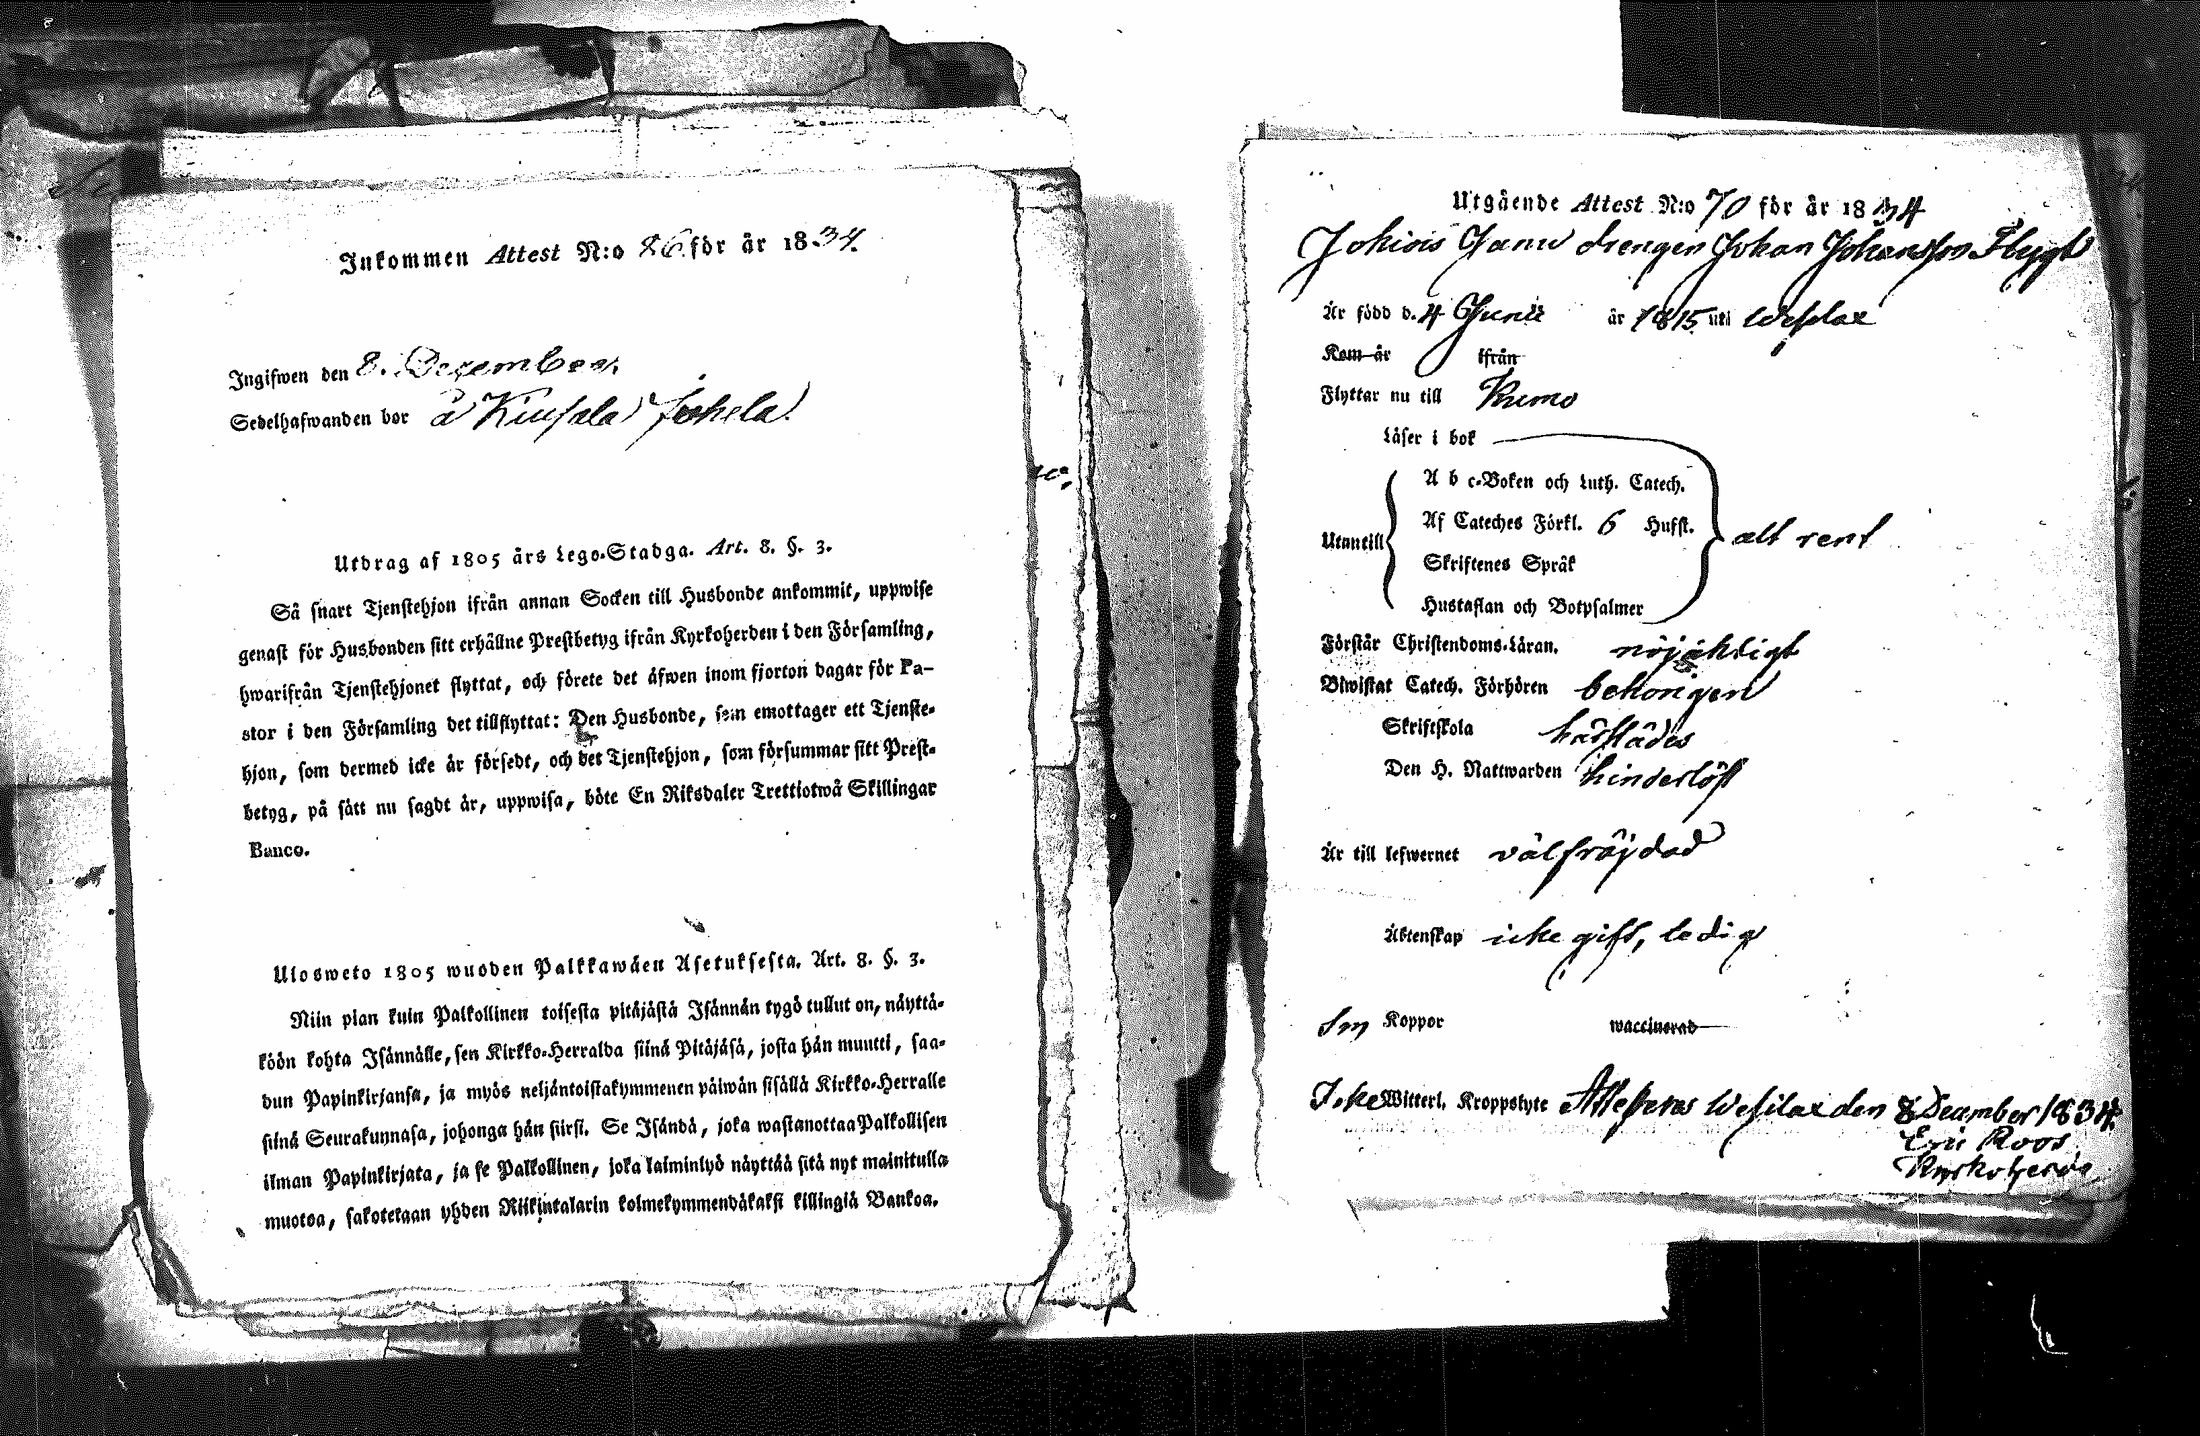 Inkommen Attest N:o 86 för år 1834.
Ingifwen den 8. December.
Sedelhafwanden bor å Kiusala Jokela.
Utdrag af 1805 års Lego-Stadga. Art. 8. §. 3.
Så snart Tjenstehjon ifrån annan Socken till Husbonde ankommit, uppwise
genast för Husbonden sitt erhållne Prestbetyg ifrån Kyrkoherden i den Församling,
hwarifrån Tjenstehjonet flyttat, och förete det äfwen inom fjorton dagar för Pa-
stor i den Församling det tillflyttat: Den Husbonde, som emottager ett Tjenste-
hjon, som dermed icke är försedt, och det Tjenstehjon, som försummar sitt Prest-
betyg, på sätt nu sagdt är, uppwisa, böte En Riksdaler Trettiotwå Skillingar
Banco.
Ulosweto 1805 wuoden Palkkawäen Asetuksesta. Art. 8. §. 3.
Niin pian kuin Palkollinen toisesta pitäjästä Isännän tygö tullut on, näyttä-
köön kohta Isännälle, sen Kirkko-Herralda siinä Pitäjäsä, josta hän muutti, saa-
dun Papinkirjansa, ja myös neljäntoistakymmenen päiwän sisällä Kirkko-Herralle
siinä Seurakunnasa, johonga hän siirsi. Se Isändä, joka wastanottaa Palkollisen
ilman Papinkirjata, ja se Palkollinen, joka laiminlyö näyttää sitä nyt mainitulla
muotoa, sakotetaan yhden Riikintalarin kolmekymmendäkaksi killingiä Bankoa.
Utgående Attest N:o 70 för år 1834
Jokiois Janu drengen Johan Johansson Flygt
Är född d. 4 Junii år 1815 uti Wesilax
Kom år ifrån
Flyttar nu till Kumo
Läser i bok
A b c-Boken och Luth. Catech.
Af Cateches Förkl. 6 Hufst.
Utantill alt rent
Skriftenes Språk
Hustaflan och Botpsalmer
Förstår Christendoms-Läran. nöjaktigt
Biwistat Catech. Förhören behörigen
Skriftskola härstädes
Den H. Nattwarden hinderlöst
Är till lefwernet välfräjdad
Äktenskap icke gift, ledig
Koppor waccinerad
Icke Witterl. Kroppslyte Attesteras Wesilax den 8 December 1834.
Eric Roos
Kyrkoherde